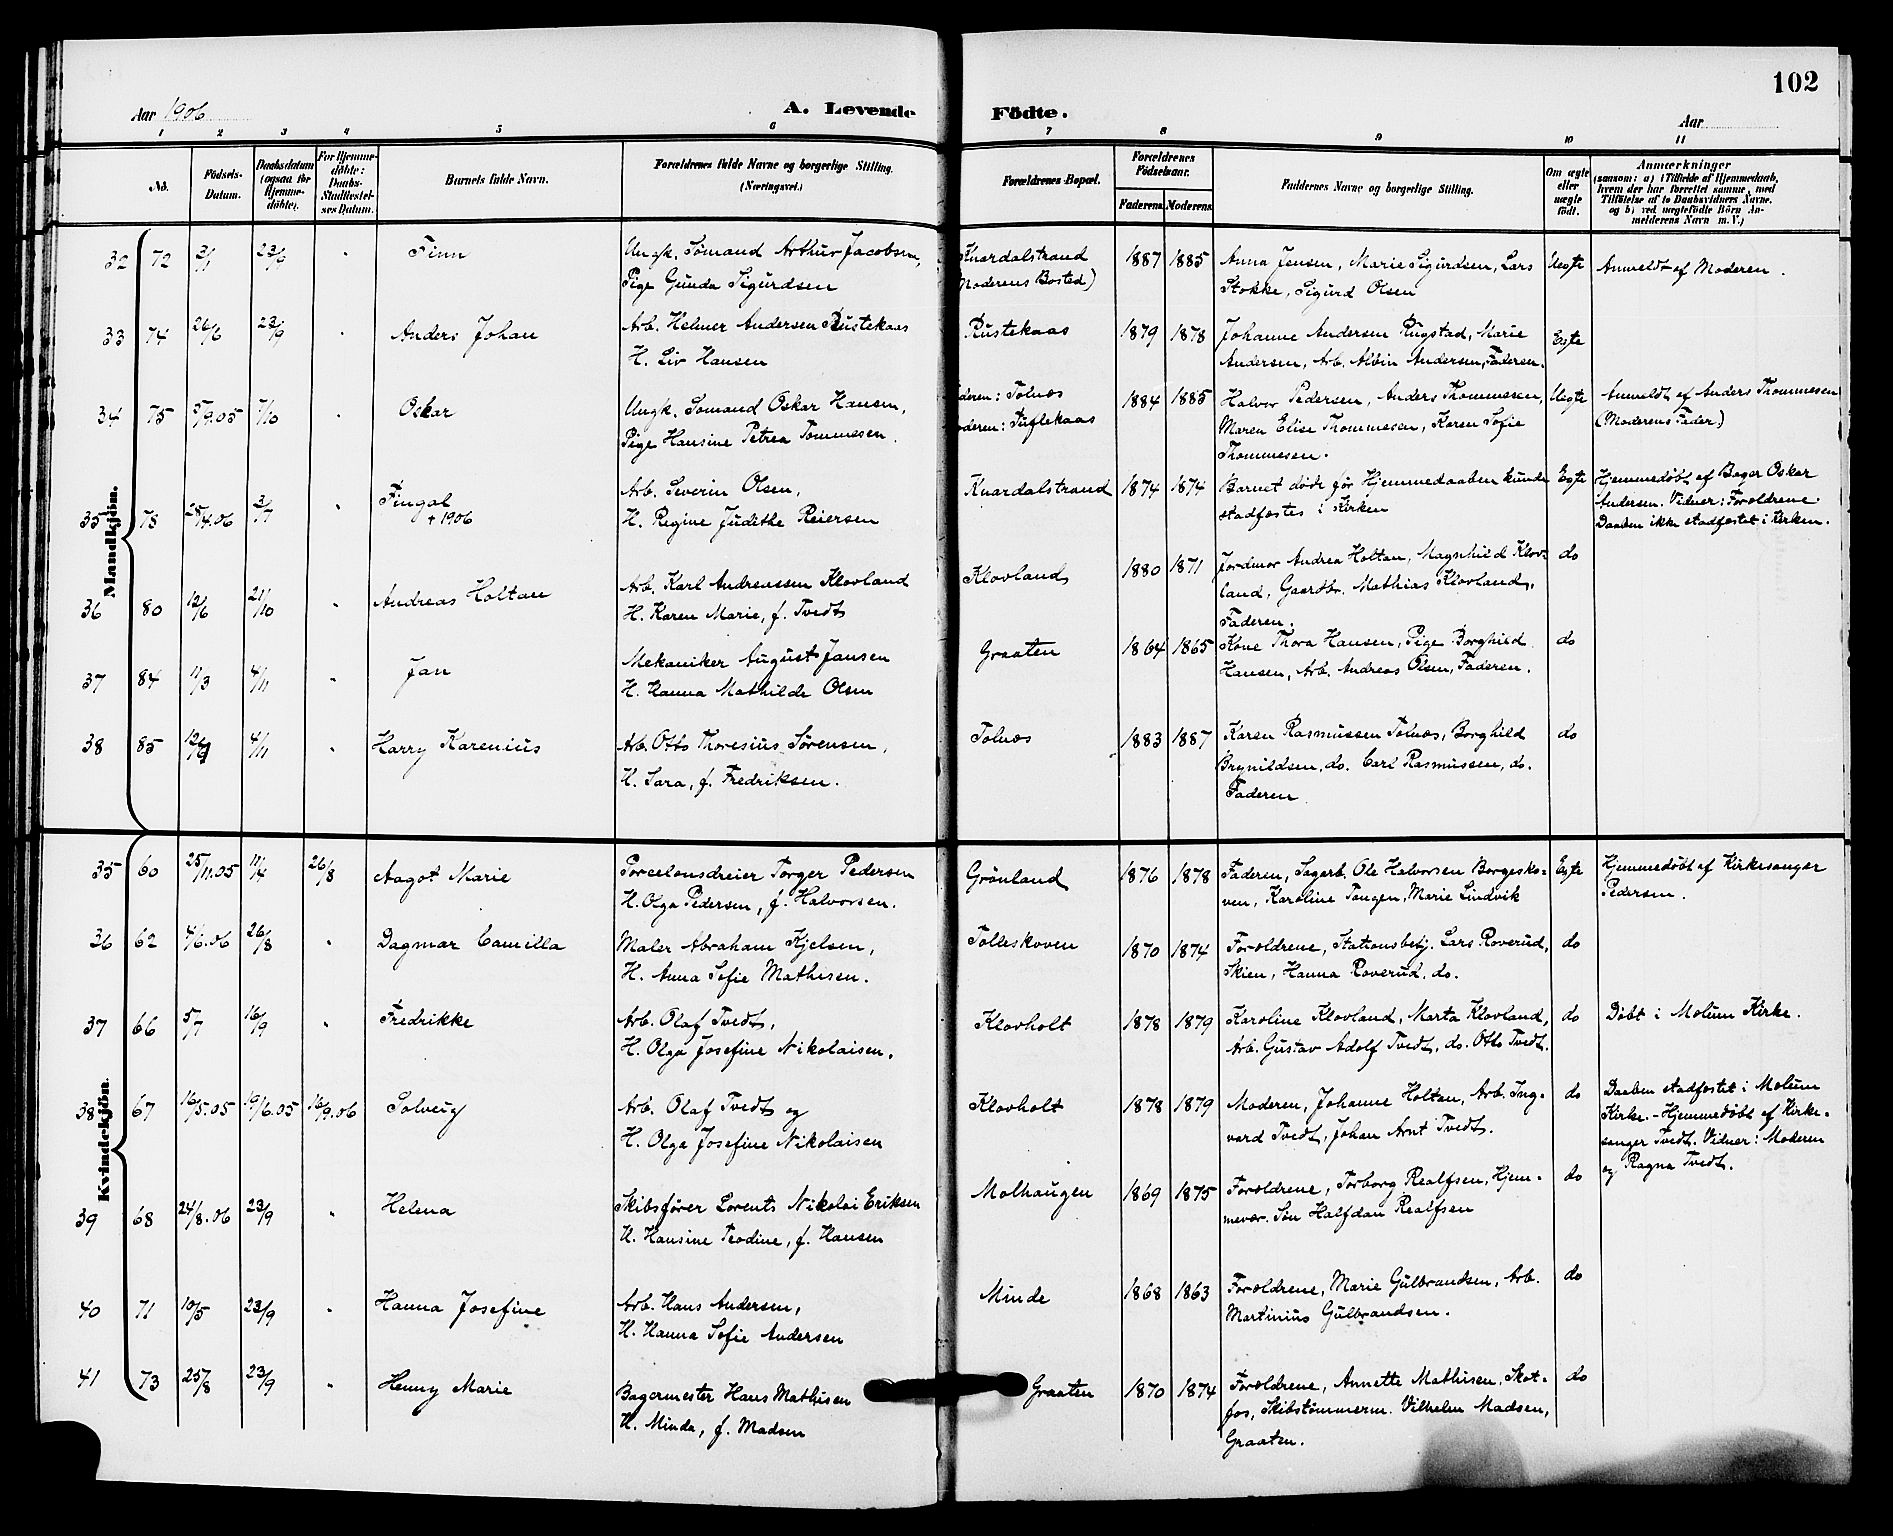 102
Aar 1906 A. Levende Födte. Aar
1 2 3 4 5 6 7 8 9 10 11
No. Födsels-Datum. Daabsdatum (ogsaa for Hjemmedöbte). For Hjemmedöbte: Daabs-Stadfæstelses Datum. Barnets fulde Navn. Forældrenes fulde Navne og borgerlige Stilling. (Næringsvei.) Forældrenes Bopæl. Forældrenes Födselsaar. Faderens Moderens Faddernes Navne og borgerlige Stilling. Om ægte eller uægte födt. Anmærkninger (saasom: a) i Tilfælde af Hjemmedaab, hvem der har forrettet samme, med Tilföielse af to Daabsvidners Navne, og b) ved uægtefödte Börn Anmelderens Navn m. V.)
Mandkjön.
32 72 23/9 " Finn Ungk. Sømand Arthur Jacobsen, Knardalstrand 1887 1885 Anna Jensen, Marie Sigurdsen, Lars Uegte Anmeldt af Moderen.
Pige Gunda Sigurdsen Moderens Bosted) Stokke, Sigurd Olsen
33 74 26/6 23/9 " Anders Johan Arb. Helmer Andersen Rustekaas Rustekaas 1879 1878 Johanne Andersen Rugstad, Marie Egte
H. Liv Hansen Andersen, Arb. Albin Andersen, Faderen.
34 75 5/9.05 7/10 " Oskar Ungk. Sømand Oskar Hansen, deren: Tolnæs 1884 1885 Halvor Pedersen, Anders Thommesen, Uegte Anmeldt af Anders Thommesen
Pige Hansine Petrea Tommesen. deren: Tuflekaas Maren Elise Thommesen, Karen Sofie (Moderens Fader)
Thommesen.
35 78 28/4.06 2/7 " Fingal Arb. Severin Olsen, Knardalstrand 1874 1874 Barnet døde før Hjemmedaaben kunde Egte Hjemmedøbt af Bager Oskar
+ 1906 H. Regine Judithe Reiersen stadfæstes i Kirken Andersen. Vidner: Forældrene.
Daaben ikke stadfæstet i Kirken.
36 80 12/6 21/10 " Andreas Holtan Arb. Karl Andreassen Klovland Klovland 1880 1871 Jordmor Andrea Holtan, Magnhild Klov- do
H. Karen Marie, f. Tvedt land, Gaardbr. Mathias Klovland,
Faderen.
37 84 11/3 4/11 " Jan Mekaniker August Jansen Graaten 1864 1865 Kone Thora Hansen, Pige Borghild do
H. Hanna Mathilde Olsen Hansen, Arb. Andreas Olsen, Faderen.
38 85 12/9 4/11 " Harry Karenius Arb. Otto Thoresius Sørensen, Tolnæs 1883 1887 Karen Rasmussen Tolnæs, Borghild do
H. Sara, f. Fredriksen. Brynildsen, do. Carl Rasmussen, do.
Faderen.
Kvindekjön.
35 60 25/11.05 11/4 26/8 Aagot Marie Porcelænsdreier Torger Pedersen Grönland 1876 1878 Faderen, Sagarb. Ole Halvorsen Borgesko- Egte Hjemmedøbt af Kirkesanger
H. Olga Pedersen, f. Halvorsen. ven, Karoline Tangen, Marie Lindvik Pedersen.
36 62 4/6.06 26/8 " Dagmar Camilla Maler Abraham Kjelsen, Tolleskoven 1870 1874 Forældrene, Stationsbetj. Lars Roverud, do
H. Anna Sofie Mathisen. Skien, Hanna Roverud, do.
37 66 5/7 16/9 " Fredrikke Arb. Olaf Tvedt, Klovholt 1878 1879 Karoline Klovland, Marta Klovland, do Døbt i Molum Kirke.
H. Olga Josefine Nikolaisen. Arb. Gustav Adolf Tvedt, do. Otto Tvedt.
38 67 16/5.05 19/6.05 16/9.06 Solveig Arb. Olaf Tvedt og Klovholt 1878 1879 Moderen, Johanne Holtan, Arb. Ing- do Daaben stadfæstet i Molum
H. Olga Josefine Nikolaisen vard Tvedt, Johan Arnt Tvedt. Kirke. - Hjemmedøbt af Kirke-
sanger Tvedt. Vidner: Moderen
og Ragna Tvedt.
39 68 24/8.06 23/9 " Helena Skibsfører Lorents Nikolai Eriksen Molhaugen 1869 1875 Forældrene, Torborg Realfsen, Hjem- do
H. Hansine Teodine, f. Hansen mevær. Søn Halfdan Realfsen
40 71 10/5 23/9 " Hanna Josefine Arb. Hans Andersen, Minde 1868 1863 Forældrene, Marie Gulbrandsen, Arb. do
H. Hanna Sofie Andersen Martinius Gulbrandsen.
41 73 25/8 23/9 " Henny Marie Bagermester Hans Mathisen Graaten 1870 1874 Forældrene, Annette Mathisen, Skot- do
H. Minda, f. Madsen fos, Skibstømmerm. Vilhelm Madsen,
Graaten.